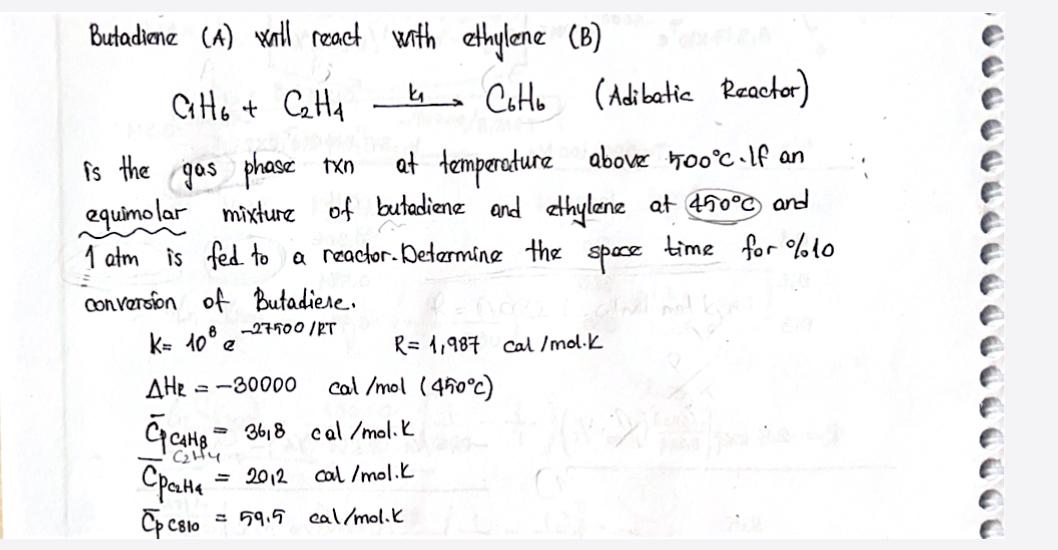 Butadiene (A) will react with ethylene (B)
C4H6 + C2H4 k1 → C6H6 (Adibatic Reactor)
is the gas phase rxn at temperature above 500°C. If an
equimolar mixture of butadiene and ethylene at 450°C and
1 atm is fed to a reactor. Determine the space time for %10
conversion of Butadiese.
K= 10^8 e^-27500/RT R= 1,987 cal/mol.K
ΔHR = -30000 cal/mol (450°C)
C̄p C4H8 = 36,8 cal/mol.K
C2H4
C̄p C2H4 = 20,2 cal/mol.K
C̄p C810 = 59.5 cal/mol.K